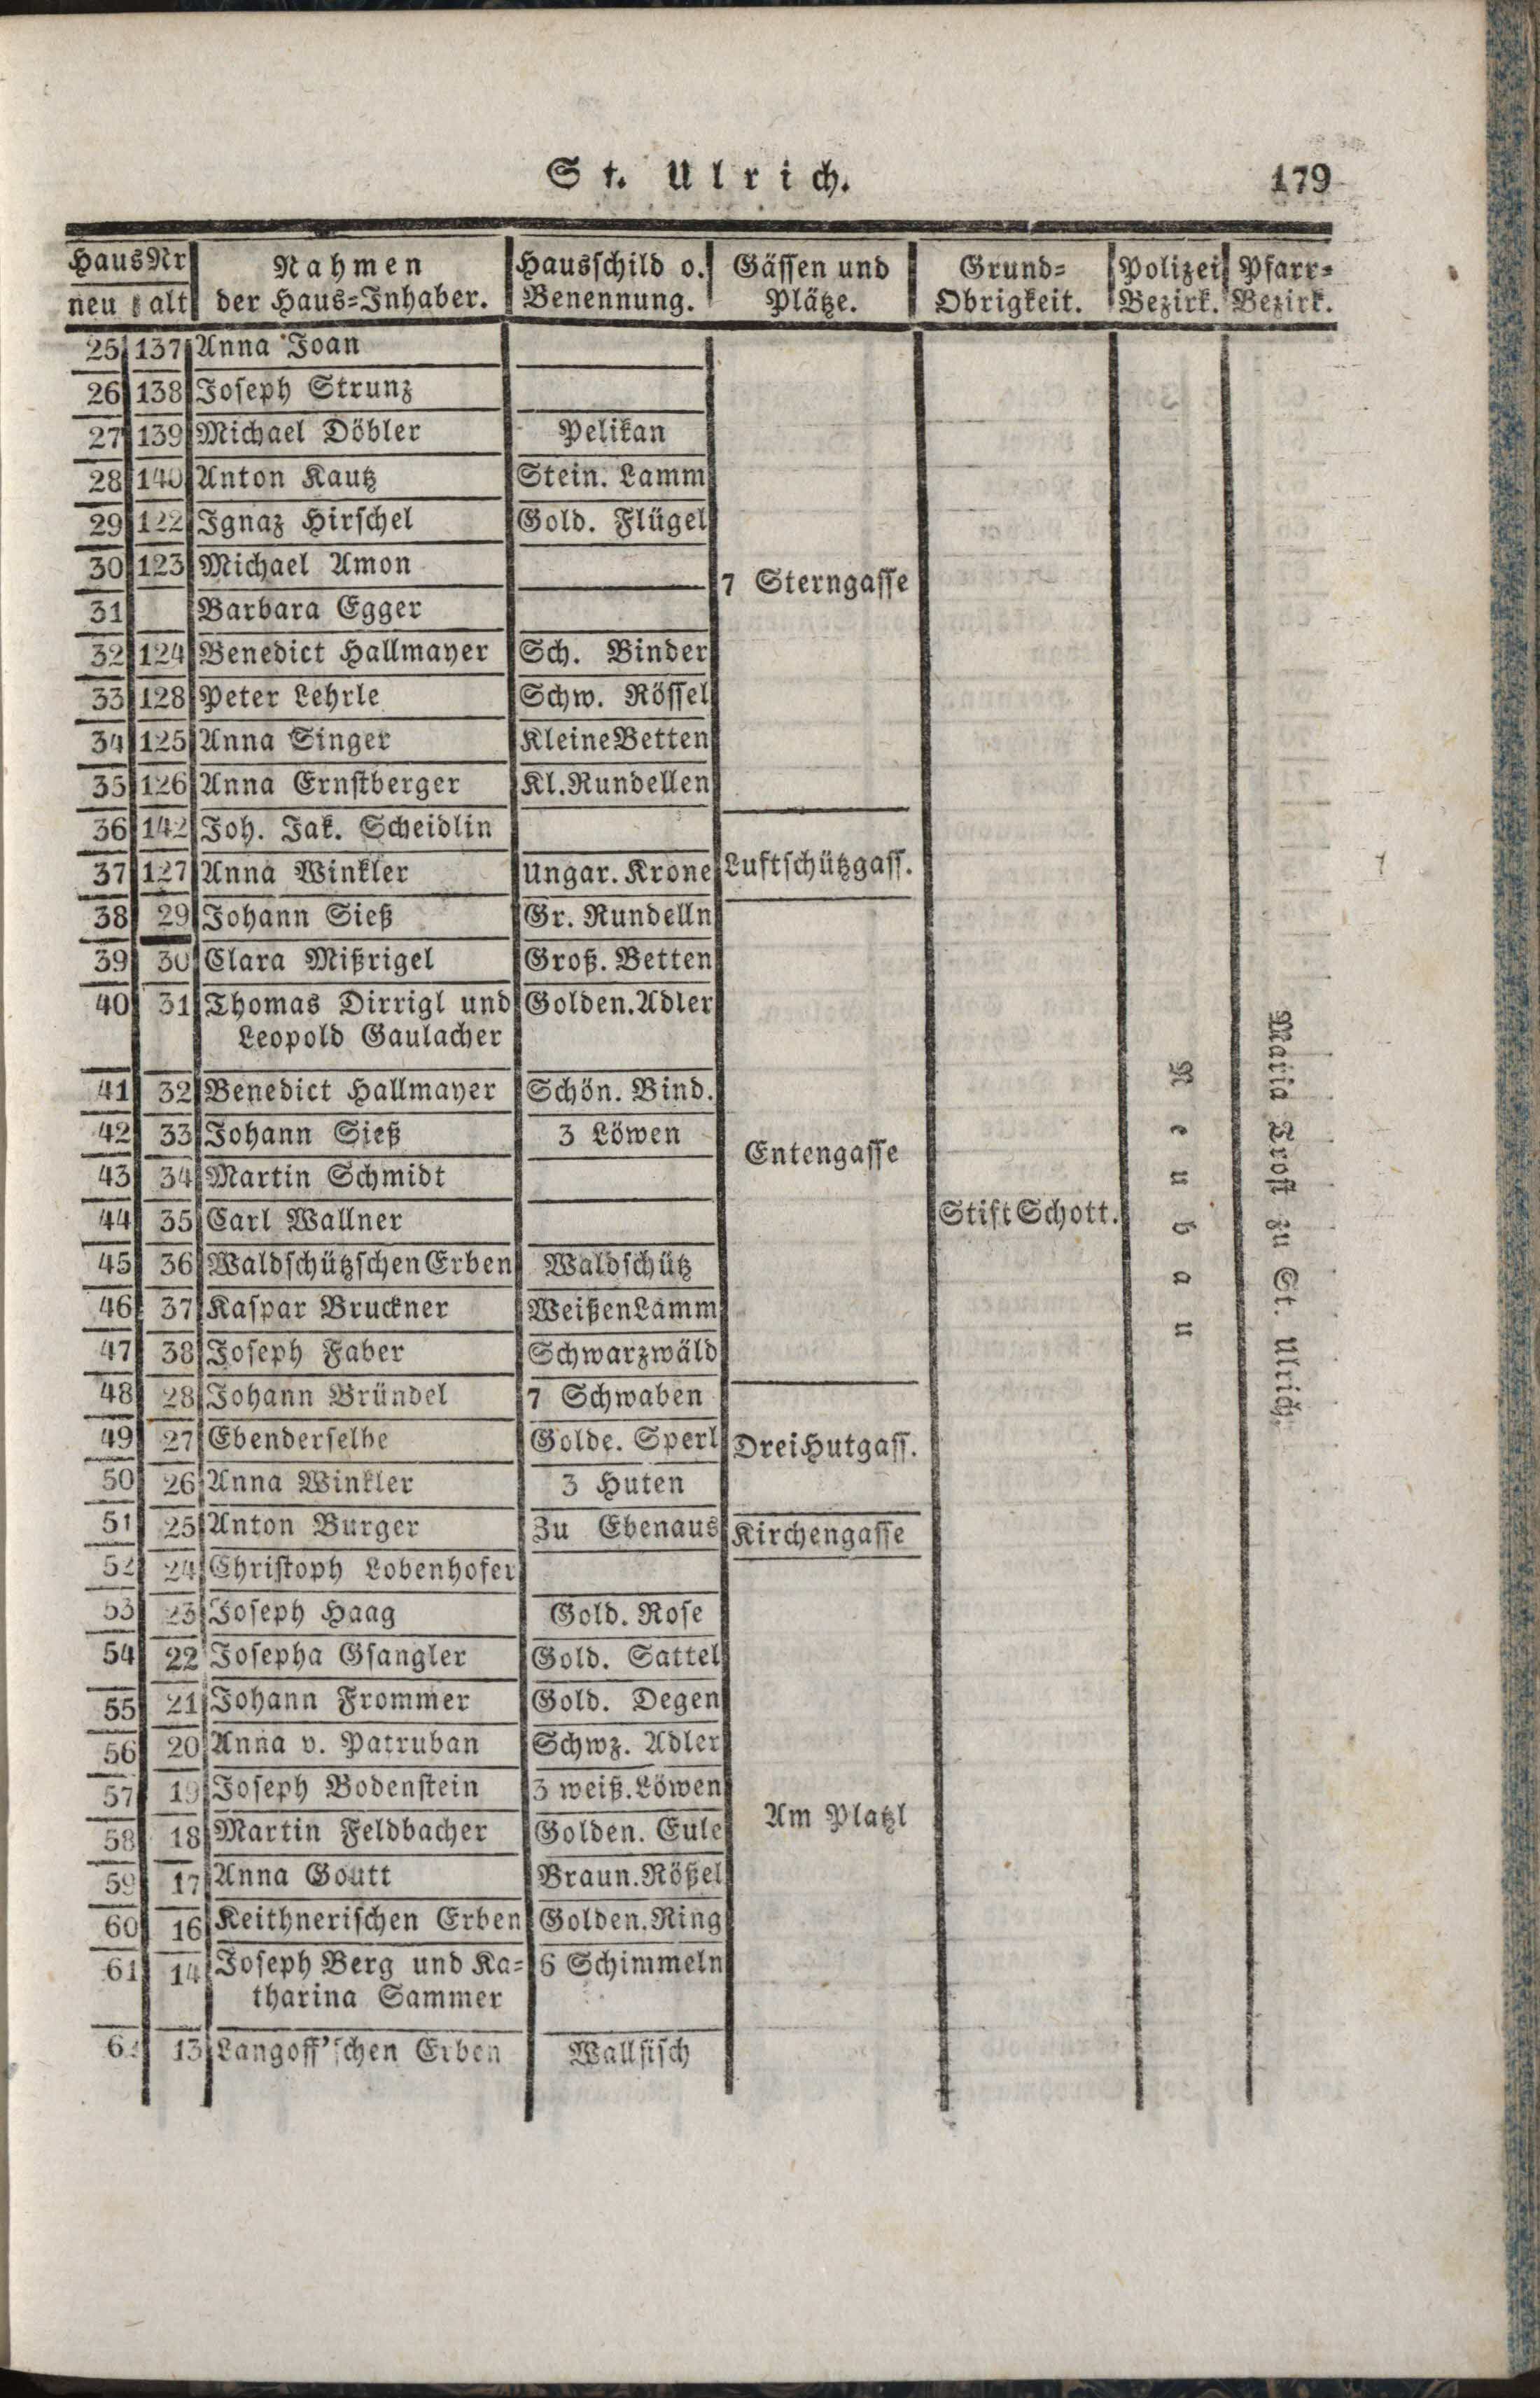 St. Ulrich. 179
Haus Nr | Nahmen | Hausschild o. | Gässen und | Grund= | Polizei | Pfarr=
neu | alt | der Haus=Inhaber. | Benennung. | Plätze. | Obrigkeit. | Bezirk. | Bezirk.
25 137 Anna Joan
26 138 Joseph Strunz
27 139 Michael Döbler Pelikan
28 140 Anton Kautz Stein. Lamm
29 122 Ignaz Hirschel Gold. Flügel
30 123 Michael Amon
7 Sterngasse
31 Barbara Egger
32 124 Benedict Hallmayer Sch. Binder
33 128 Peter Lehrle Schw. Rössel
34 125 Anna Singer Kleine Betten
35 126 Anna Ernstberger Kl. Rundellen
36 142 Joh. Jak. Scheidlin
37 127 Anna Winkler Ungar. Krone Luftschützgass.
38 29 Johann Sieß Gr. Rundelln
39 30 Clara Mißrigel Groß. Betten
40 31 Thomas Dirrigl und Golden. Adler
Leopold Gaulacher
41 32 Benedict Hallmayer Schön. Bind.
42 33 Johann Sieß 3 Löwen
Entengasse
43 34 Martin Schmidt
44 35 Carl Wallner Stift Schott.
45 36 Waldschützschen Erben Waldschütz
46 37 Kaspar Bruckner Weißen Lamm
47 38 Joseph Faber Schwarzwäld
48 28 Johann Bründel 7 Schwaben
49 27 Ebenderselbe Golde. Sperl Drei Hutgass.
50 26 Anna Winkler 3 Huten
51 25 Anton Burger Zu Ebenaus Kirchengasse
52 24 Christoph Lobenhofer
53 23 Joseph Haag Gold. Rose
54 22 Josepha Gsangler Gold. Sattel
55 21 Johann Frommer Gold. Degen
56 20 Anna v. Patruban Schwz. Adler
57 19 Joseph Bodenstein 3 weiß. Löwen
Am Platzl
58 18 Martin Feldbacher Golden. Eule
59 17 Anna Goutt Braun. Rößel
60 16 Keithnerischen Erben Golden. Ring
61 14 Joseph Berg und Ka=
tharina Sammer 6 Schimmeln
62 13 Langoff'schen Erben Wallfisch
Neubau
Maria Trost zu St. Ulrich.